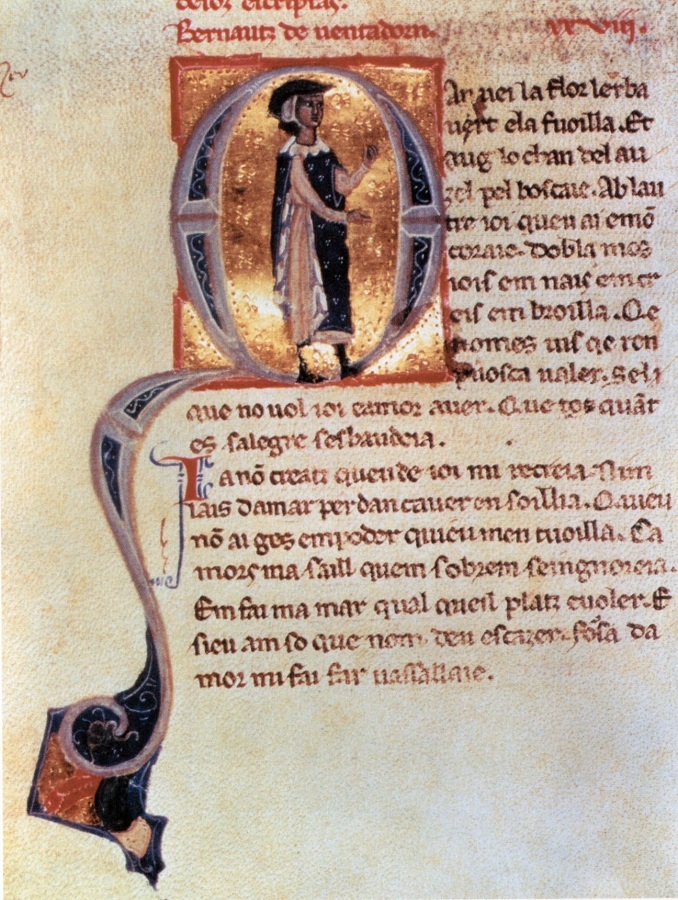 Bernautz de uentadorn. xxviij.
Qan uei la flor lerba
uert ela fuoilla. Et
aug lo chan del au
zel pel boscaie. Ab lau
tre ioi queu ai emō
coraie. dobla mos
iois em nais em cr
eis em broilla. Qe
nomes uis qe ren
puosca ualer. Seli
que no uol ioi eamor auer. Que tos quāt
es salegre sesbaudeia.
Ia nō creatz queu de ioi mi recreia. Nim
lais damar per dan cauer en soillia. Qaueu
nō ai ges em poder quieu men tuoilla. Ca
mors ma saill quem sobrem seingnoreia.
Em fai ma mar qual queil platz euoler. E
sieu am so que nom deu escazer. fosa da
mor mi fai far uassallaie.